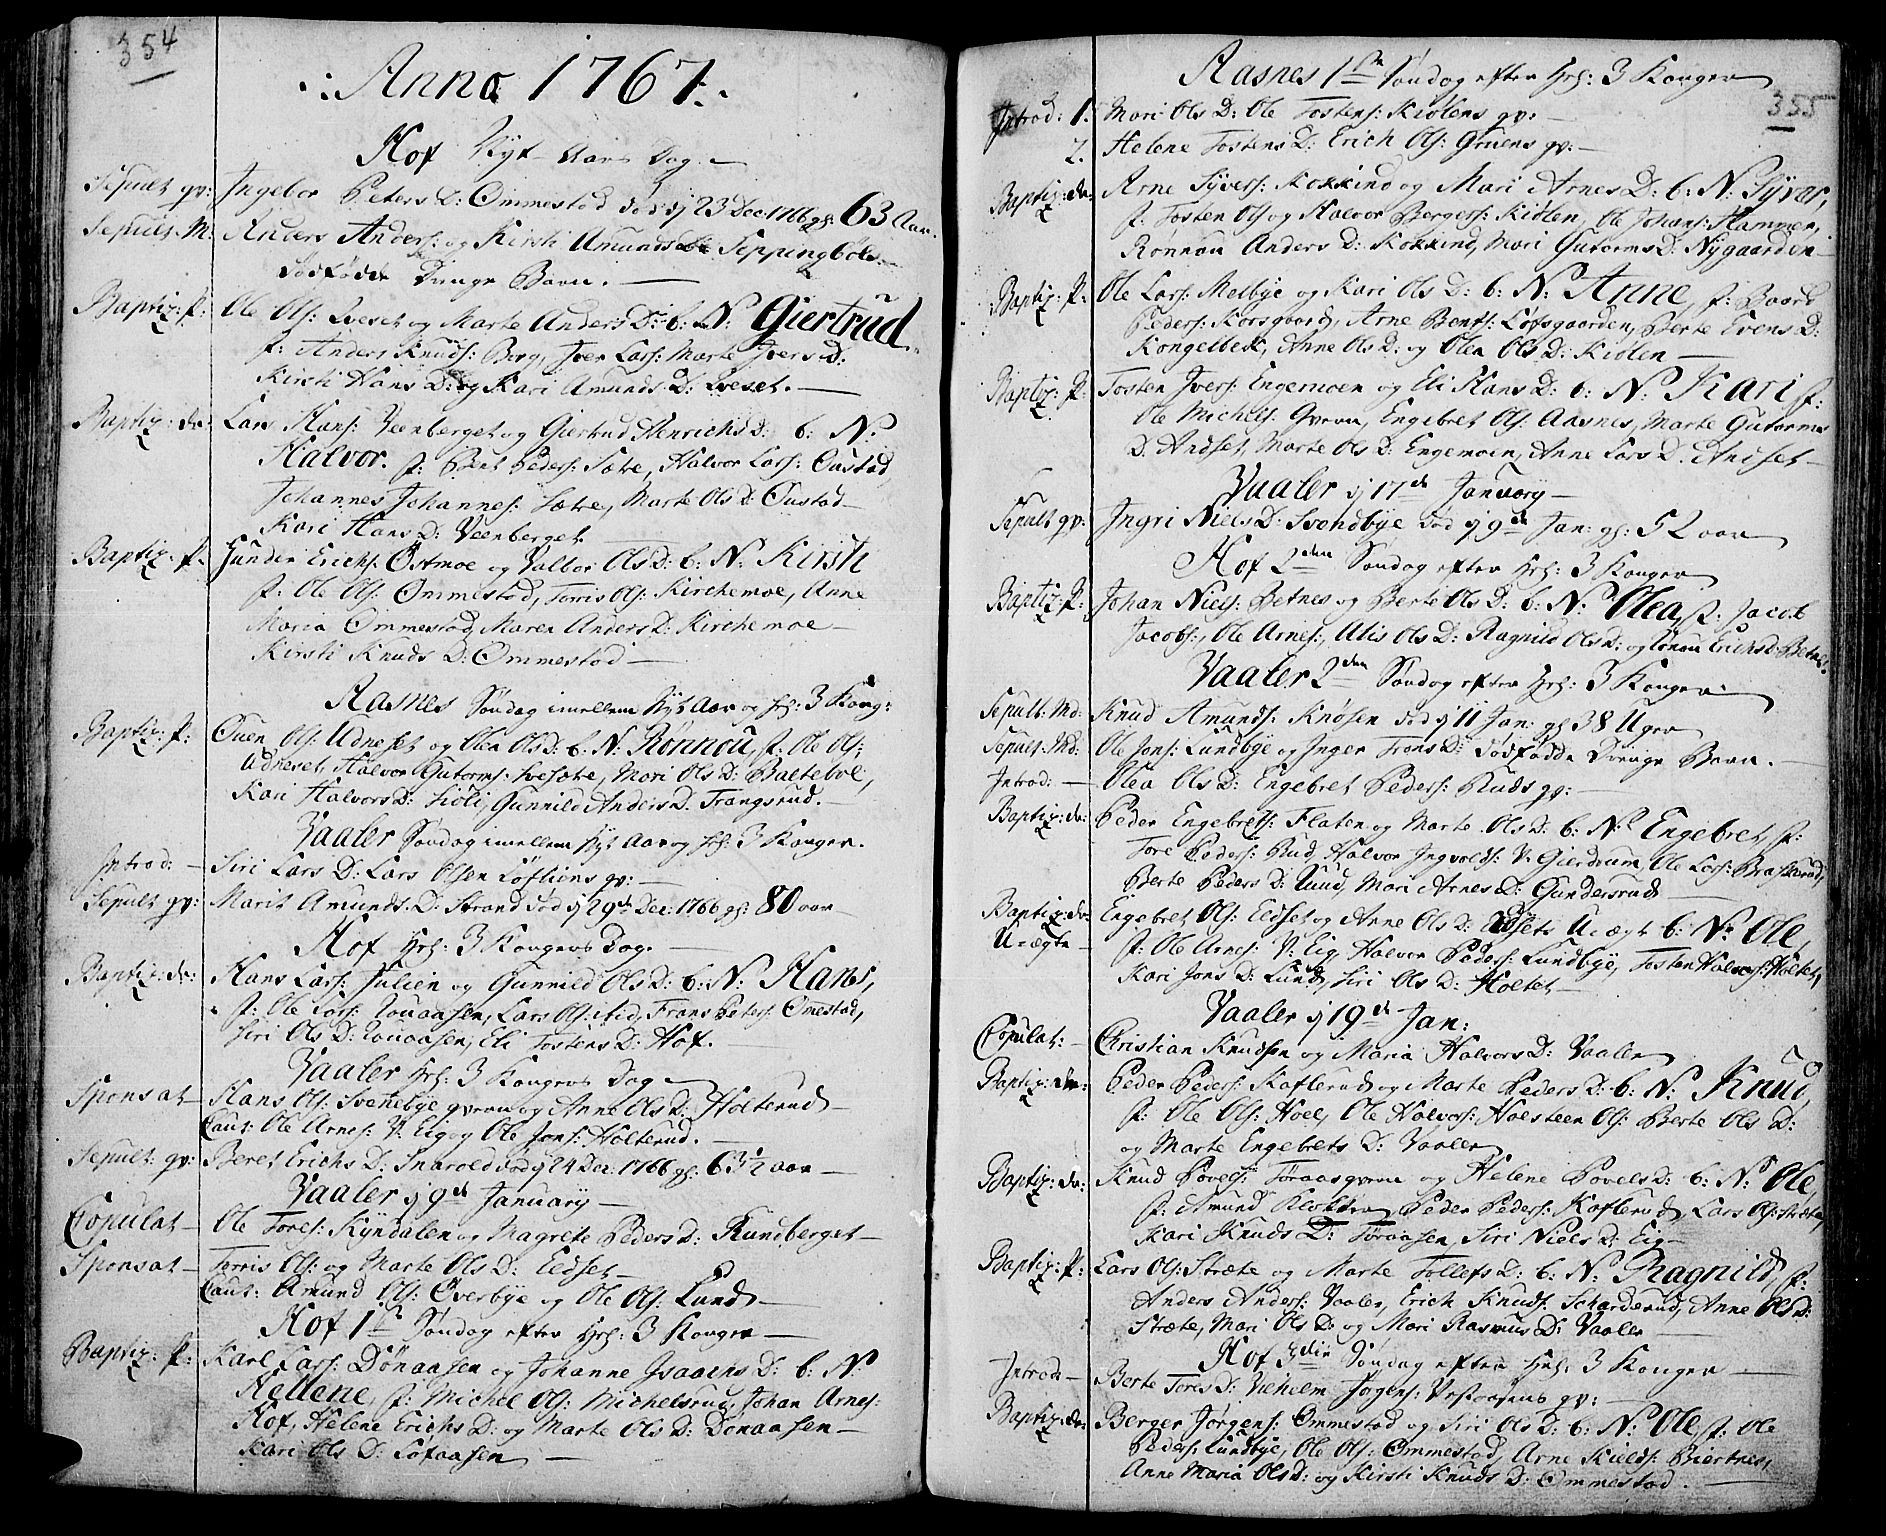 354
Anno 1767.
Hof Nyt-Aars Dag.
Sepult qv: Ingebor Peters D: Ommestad død d 23 Dec: 1766 gl: 63 Aar.
Sepult: M. Anders Anders: og Kirsti Amunds Seppingbøls
dødfødde Drenge Barn.
Baptiz: P: Ole Ols: Sveset og Marte Anders D: b: N: Giertrud
f: Anders Knuds: Berg, Iver Lars: Marte Ivers D:
Kirsti Hans D: og Kari Amunds D: Sveset.
Baptiz: dr: Lars Hans: Veenberget og Giertrud Henrichs D: b: N:
Halvor. f: Bent Peders: Sætre, Halvor Lars: Oustad,
Johannes Johannes: Sætre, Marte Ols D: Oustad
Kari Hans D: Veenberget
Baptiz: P: Gunder Erichs: Østmoe og Valbor Ols D: b: N: Kirsti
f: Ole Ols: Ommestad, Torris Ols: Kirchemoe, Anne
Maria Ommestad, Maren Anders D: Kirchemoe
Kirsti Knuds D: Ommestad
Aasnes Søndag imellem Nyt Aar og Hel: 3 Kong:
Baptiz: P: Ouen Ols: Udneset og Olea Ols D: b: N: Rønnou, f: Ole Ols:
Udneset, Halvor Gutorms: Svesætre, Mari Ols D: Baltebøl,
Kari Halvors D: Liøli, Gunnild Anders D: Trangsrud.
Vaaler Søndag imellem Nyt Aar og Hel: 3 Konger.
Introd: Siri Lars D: Lars Olsen Løftiens qv:
Sepult qv: Marit Amunds D: Strand død d 29de Dec: 1766 gl: 80 aar
Hof Hel: 3 Kongers Dag.
Baptiz: dr: Hans Lars: Julien og Gunnild Ols D: b: N: Hans,
f: Ole Lars: Nouaasen, Lars Ols: ibid, Frans Peters: Omestad,
Siri Ols D: Nouaasen, Eli Tostens D: Hof.
Vaaler Hel: 3 Kongers Dag
Sponsat Hans Ols: Svenebye qvern og Anne Ols D: Holterud
Caut: Ole Arnes: V: Eig og Ole Jons: Holterud.
Sepult: qv: Beret Erichs D: Snarold død d 24 Dec: 1766 gl: 63 1/2 aar
Vaaler d 9de January
Copulat Ole Tores: Kyndalen og Magrete Peders D: Rundberget
Sponsat Torris Ols: og Marte Ols D: Eidset
Caut: Amund Ols: Overbye og Ole Ols: Lund
Hof 1ste Søndag efter Hel: 3 Konger
Baptiz: P: Karl Lars: Dønaasen og Johanne Isaacs D: b: N:
Hellene, f: Michel Ols: Michelsrud, Johan Arnes:
Hof, Helene Erichs D: og Marte Ols D: Dønaasen
Kari Ols D: Løfaasen
355
Aasnes 1ste Søndag efter Hel: 3 Konger
Introd: 1. Mari Ols D: Ole Tostens: Kiølens qv:
2. Helene Tostens D: Erich Ols: Gruens qv:
Baptiz: dr: Arne Syvers: Kokkind og Mari Arnes D: b: N: Syver,
f: Tosten Ols: og Halvor Bergers: Kiølen, Ole Johans: Hammer,
Rønnau Anders D: Kokkind, Mari Gutorms D: Nygaarden
Baptiz: P: Ole Lars: Melbye og Kari Ols D: b: N: Anne, f: Baard
Peders: Korsgaard, Arne Bents: Løfsgaarden, Berte Evens D:
Kongelbek, Anne Ols D: og Olea Ols D: Kiølen
Baptiz: P: Tosten Ivers: Engemoen og Eli Hans D: b: N: Kari f:
Ole Michels: Qvern, Engebret Ols: Aasnes, Marte Gutorms
D: Andset, Marte Ols D: Engemoen, Anne Lars D: Andset
Vaaler d 17de January
Sepult qv: Ingri Niels D: Svendbye død d 9de Jan: gl: 52 aar
Hof 2den Søndag efter Hel: 3 Konger
Baptiz: P: Johan Niels: Betnes og Berte Ols D: b: N: Olea, f: Jacob
Jacobs:, Ole Arnes:, Alis Ols D: Ragnild Ols D: og Rønau Erichs D: Betnes.
Vaaler 2den Søndag efter Hel: 3 Konger
Sepult: Md: Knud Amunds: Knøsen død d 11 Jan: gl: 38 Uger
Sepult: Md: Ole Jons: Lundbye og Inger Frans D: dødfødde Drenge Barn.
Introd: Olea Ols D: Engebret Peders: Ruds qv:
Baptiz: dr: Peder Engebrets: Flaten og Marte Ols D: b: N: Engebret, f:
Tore Peders: Rud, Halvor Ingvolds: V: Gierdrum, Ole Lars: Braskerud,
Berte Peders D: Ruud, Mari Arnes D: Gundersrud
Baptiz: dr: Engebret Ols: Eidset og Anne Ols D: Eidsets Uægt b: N: Ole,
Uægte f: Ole Arnes: V: Eig, Halvor Peders: Lundbye, Tosten Halvors: Holtet,
Kari Jons D: Lund, Siri Ols D: Holtet
Vaaler d 19de Jan:
Copulat: Christian Knudsen og Maria Halvors D: Vaaler
Baptiz: dr: Peder Peders: Kaflerud og Marte Peders D: b: N: Knud,
f: Ole Ols: Hoel, Ole Halvors: Holsteen Ols: Berte Ols D:
og Marte Engebrets D: Vaaler
Baptiz: dr: Knud Povels: Tøraasqvern og Helene Povels D: b: N: Ole,
f: Amund Klokker, Peder Peders: Kaflerud, Lars Ols: Stræte,
Kari Knuds D: Tøraasen, Siri Niels D: Eig
Baptiz: P: Lars Ols: Stræte og Marte Tollefs D: b: N: Ragnild, f:
Anders Anders: Vaaler, Erich Knuds: Scharderud, Anne Ols D:
Stræte, Mari Ols D: og Mari Rasmus D: Vaaler
Hof 3die Søndag efter Hel: 3 Konger
Introd: Berte Toris D: Vilhelm Jørgens: Vestaasens qv:
Baptiz: dr: Berger Jørgens: Ommestad og Siri Ols D: b: N: Ole f: Ole
Peders: Lundbye, Ole Ols: Ommestad, Arne Kields: Biertnes,
Anne Maria Ols D: og Kirsti Knuds D: Ommestad.